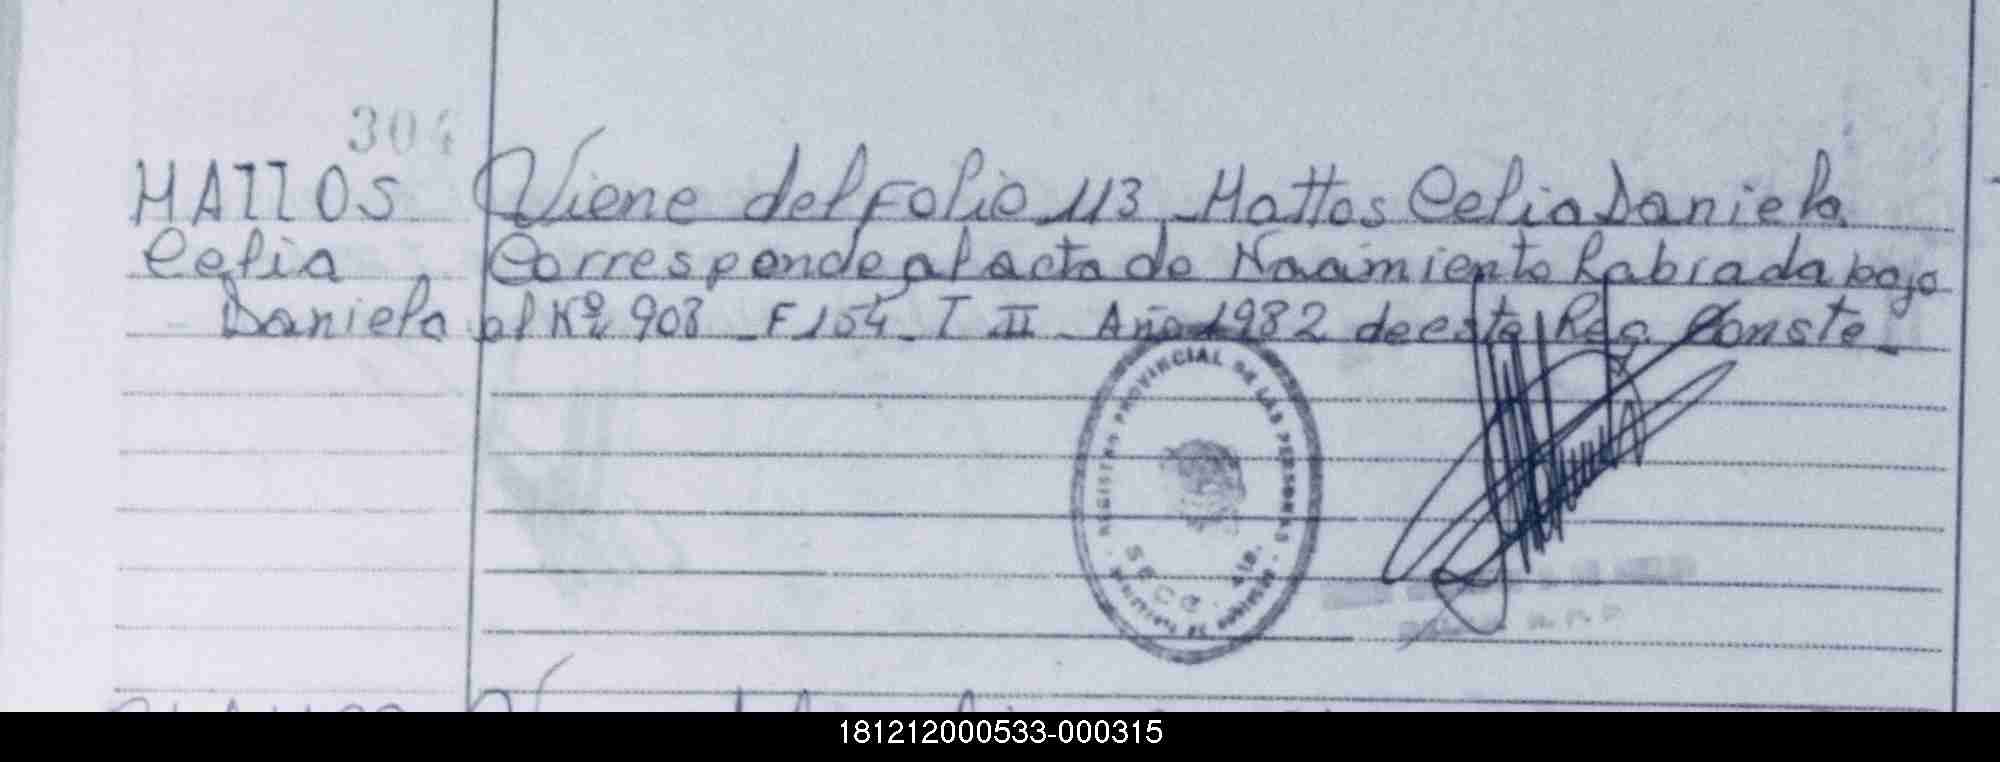 304
MATTOS Viene del Folio 113 - Mattos Celia Daniela
Celia Corresponde al acta de Nacimiento Labrada bajo
Daniela el Nº 903 - F 154 - T II - Año 1982 de este Reg. Conste -
REGISTRO PROVINCIAL DE LAS PERSONAS
181212000533-000315